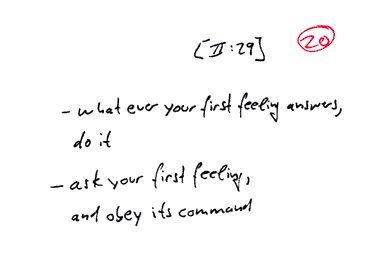 [II:29]
20
- what ever your first feeling answers,
do it
- ask your first feeling,
and obey its command